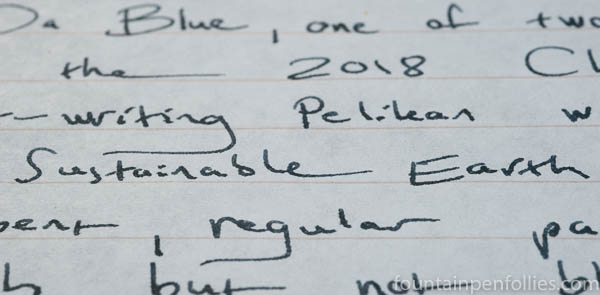 Da Blue, one of two
the 2018 Cl
-writing Pelikan w
Sustainable Earth
pent, regular pa
but not bl
fountainpenfollies.com